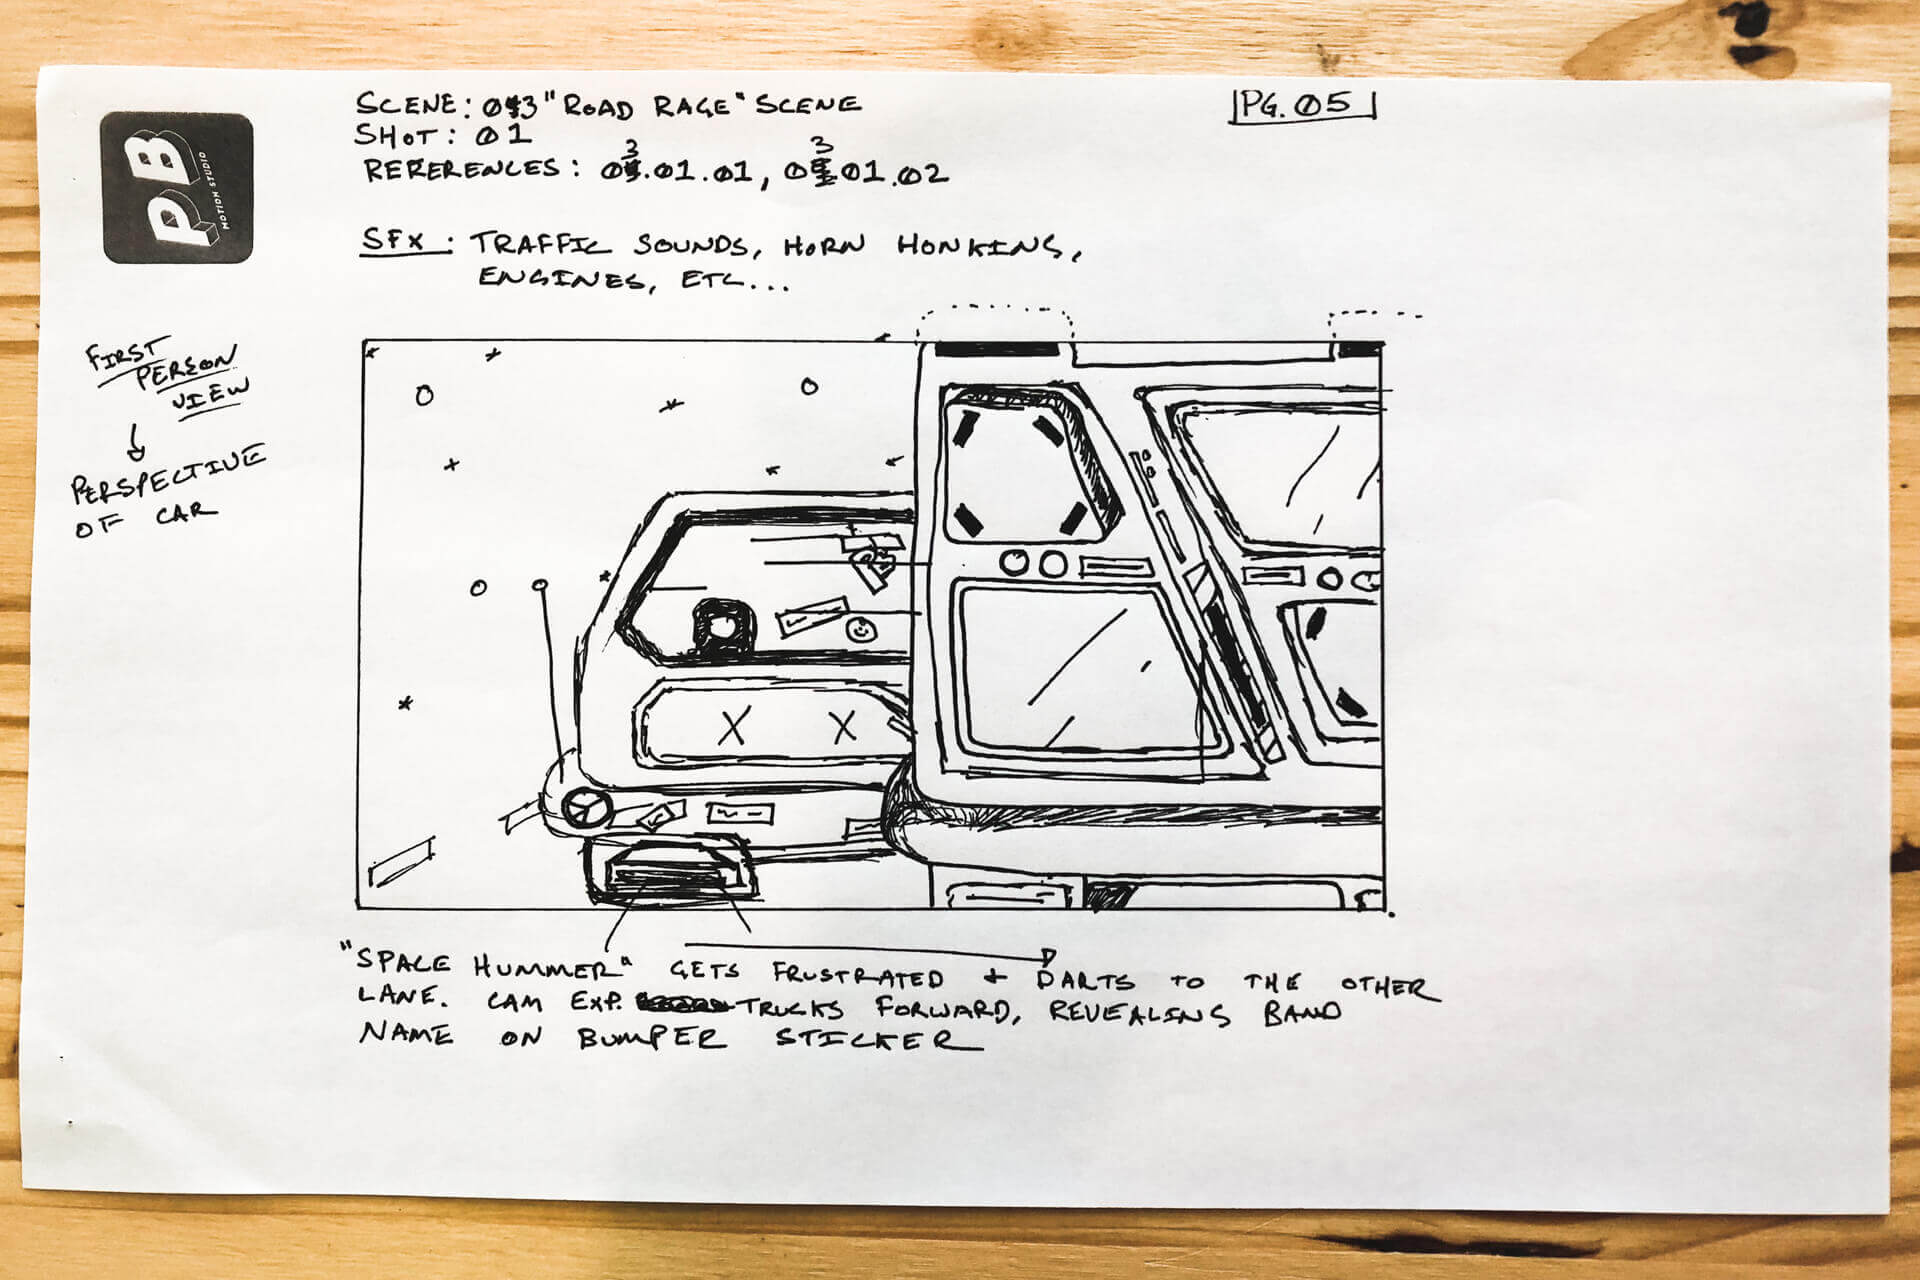 PB
MOTION STUDIO
SCENE: 03 "ROAD RAGE" SCENE
PG. 05
SHOT: 01
RERERENCES: 03.01.01, 03.01.02
SFX: TRAFFIC SOUNDS, HORN HONKING,
ENGINES, ETC...
FIRST
PERSON
VIEW
PERSPECTIVE
OF CAR
X X
"SPACE HUMMER" GETS FRUSTRATED + DARTS TO THE OTHER
LANE. CAM EXP. TRUCKS FORWARD, REVEALING BAND
NAME ON BUMPER STICKER